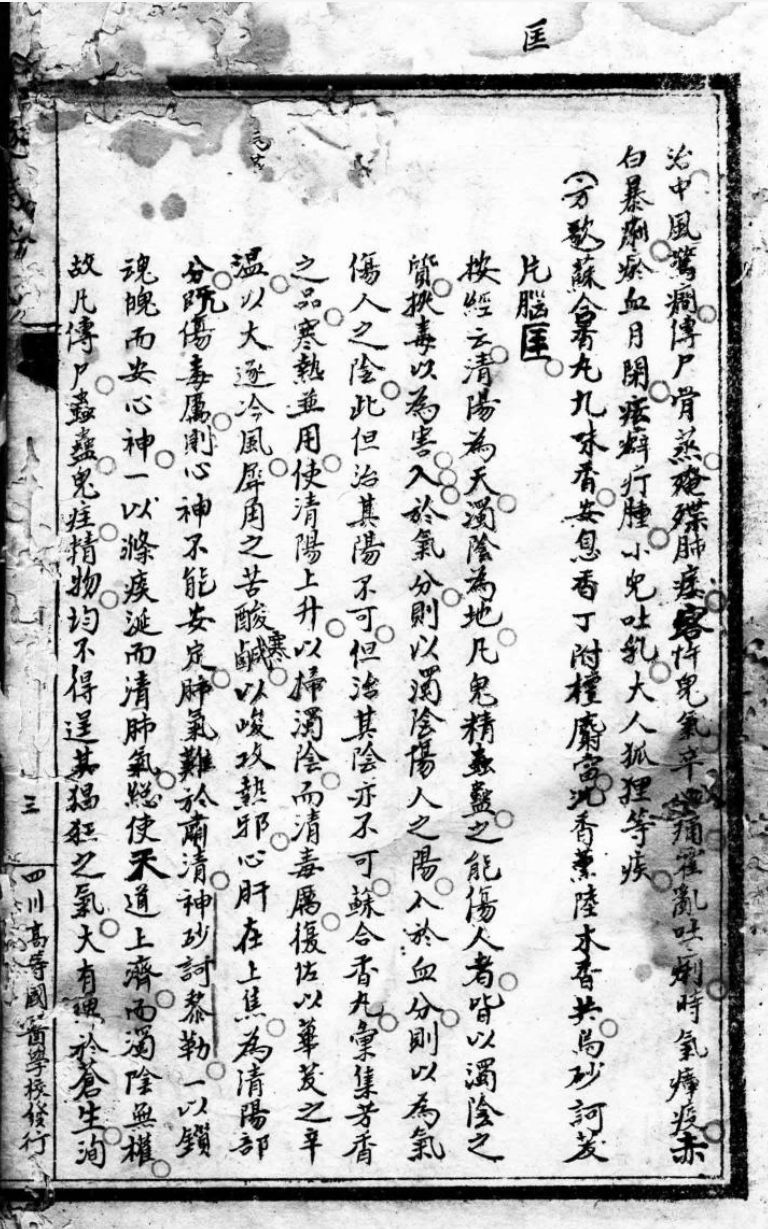 匡
治中風驚癇傳尸骨蒸殗殜肺痿客忤鬼氣卒心痛霍亂吐痢時氣瘴疫赤
白暴痢瘀血月閉痃癖疔腫小兒吐乳大人狐狸等疾
(方歌蘇合香丸九味香安息香丁附檀麝當沉香薰陸木香共烏砂訶茇
片腦匡
按經云清陽為天濁陰為地凡鬼精蟲蠱之能傷人者皆以濁陰之
質挾毒以為害入於氣分則以濁陰傷人之陽入於血分則以為氣
傷人之陰此但治其陽不可但治其陰亦不可蘇合香丸彙集芳香
之品寒熱並用使清陽上升以掃濁陰而清毒厲復佐以蓽茇之辛
溫以大逐冷風犀角之苦酸鹹寒以峻攻熱邪心肝在上焦為清陽部
分既傷毒厲則心神不能安定肺氣難於肅清神砂訶黎勒一以鎮
魂魄而安心神一以滌痰涎而清肺氣總使天道上濟而濁陰無權
故凡傳尸蟲蠱鬼疰精物均不得逞其猖狂之氣大有理於蒼生洵
三
四川高等國醫學校發行